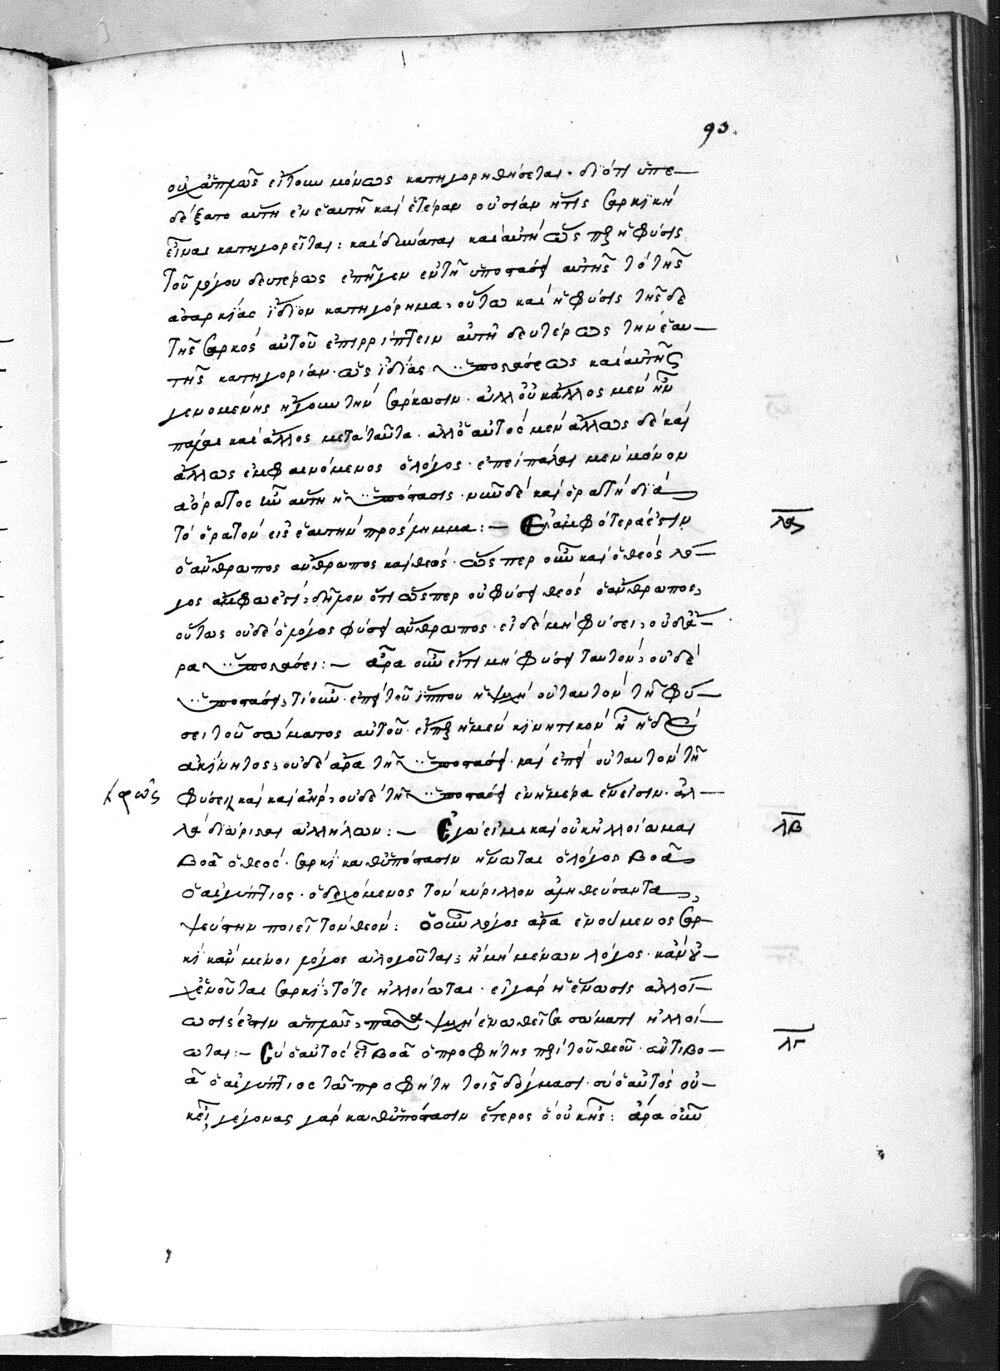 93.
οὐχ ἁπλῶς εἴτουν μόνως κατηγορηθήσεται. διότι ὑπε-
δέξατο αὕτη ἐν ἑαυτῇ καὶ ἑτέραν οὐσίαν ἥτις σαρκικὴ
εἶναι κατηγορεῖται: καὶ αὐτὴ ὥσπερ ἡ φύσις
τοῦ λόγου δευτέρως ἐν τῇ ὑποστάσει αὐτῆς τὸ τῆς
ἀσαρκίας ἴδιον κατηγόρημα, οὕτω καὶ ἡ φύσις τῆς δὲ
τῆς σαρκὸς αὐτοῦ ἐπιρρίπτειν αὐτῇ δευτέρως τὴν ἑαυ-
τῆς κατηγορίαν. ὡς ἰδίας ὑποστάσεως καὶ αὐτῆς
γενομένης ἤγουν τὴν σάρκωσιν. ἀλλ' οὐκ ἄλλος μὲν ἦν
πάλαι καὶ ἄλλος μετὰ ταῦτα. ἀλλ' ὁ αὐτὸς μὲν ἄλλως δὲ καὶ
ἄλλως ἐμφαινόμενος ὁ λόγος. ἐπεὶ πάλαι μὲν μόνον
ἀόρατος ἦν αὕτη ἡ ὑπόστασις. νῦν δὲ καὶ ὁρατὴ διὰ
τὸ ὁρατὸν εἰς ἑαυτὴν πρόσλημμα:— Εἰ ἀμφότερά ἐστιν
λα
ὁ ἄνθρωπος ἄνθρωπος καὶ θεός. ὥσπερ οὖν καὶ ὁ θεὸς λό-
γος ἄμφω ἐστί, δῆλον ὅτι ὥσπερ οὐ φύσει θεὸς ὁ ἄνθρωπος,
οὕτως οὐδὲ ὁ λόγος φύσει ἄνθρωπος. εἰ δὲ μὴ φύσει, οὐδ' ἄ-
ρα ὑποστάσει:— ἆρα οὖν εἴ τι μὴ φύσει ταυτόν, οὐδὲ
ὑποστάσει, τί οὖν. ἐπεὶ τοῦ ἵππου ἡ ψυχὴ οὐ ταυτὸν τῇ φύ-
σει τοῦ σώματος αὐτοῦ. εἴπερ ἡ μὲν κινητικὸν ἦν ἡ δὲ
ἀκίνητος, οὐδὲ ἄρα τῇ ὑποστάσει. καὶ ἐπεὶ οὐ ταυτὸν τῇ
φῶς
φύσει καὶ ἀήρ, οὐδὲ τῇ ὑποστάσει ἐν ἡμέρα ἐνεῖσιν. ἀλ-
λὰ διώρισται ἀλλήλων:— Ἐγώ εἰμι καὶ οὐκ ἠλλοίωμαι
λβ
βοᾷ ὁ θεός. σαρκὶ καθ' ὑπόστασιν ἥνωται ὁ λόγος βοᾷ
ὁ αἰγύπτιος. ὁ δεχόμενος τὸν κύριλλον ἀληθεύσαντα,
ψεύστην ποιεῖ τὸν θεόν: ὁ οὖν λόγος ἄρα ἑνούμενος σαρ-
κὶ κἂν μένοι λόγος ἀλογοῦται, ἢ μὴ μένων λόγος. κἂν οὐ-
χ ἑνοῦται σαρκί, τότε ἠλλοίωται. εἰ γὰρ ἡ ἕνωσις ἀλλοί-
ωσίς ἐστιν ἁπλῶς, πᾶσα ψυχὴ ἑνωθεῖσα σώματι ἠλλοί-
ωται:— Σὺ ὁ αὐτὸς εἶ βοᾷ ὁ προφήτης περὶ τοῦ θεοῦ. ἀντιβο-
λγ
ᾷ ὁ αἰγύπτιος τῷ προφήτῃ τοῖς δόγμασι. σὺ ὁ αὐτὸς οὐ-
κ εἶ, γέγονας γὰρ καθ' ὑπόστασιν ἕτερος ὃ οὐκ ἦς: ἆρα οὖν